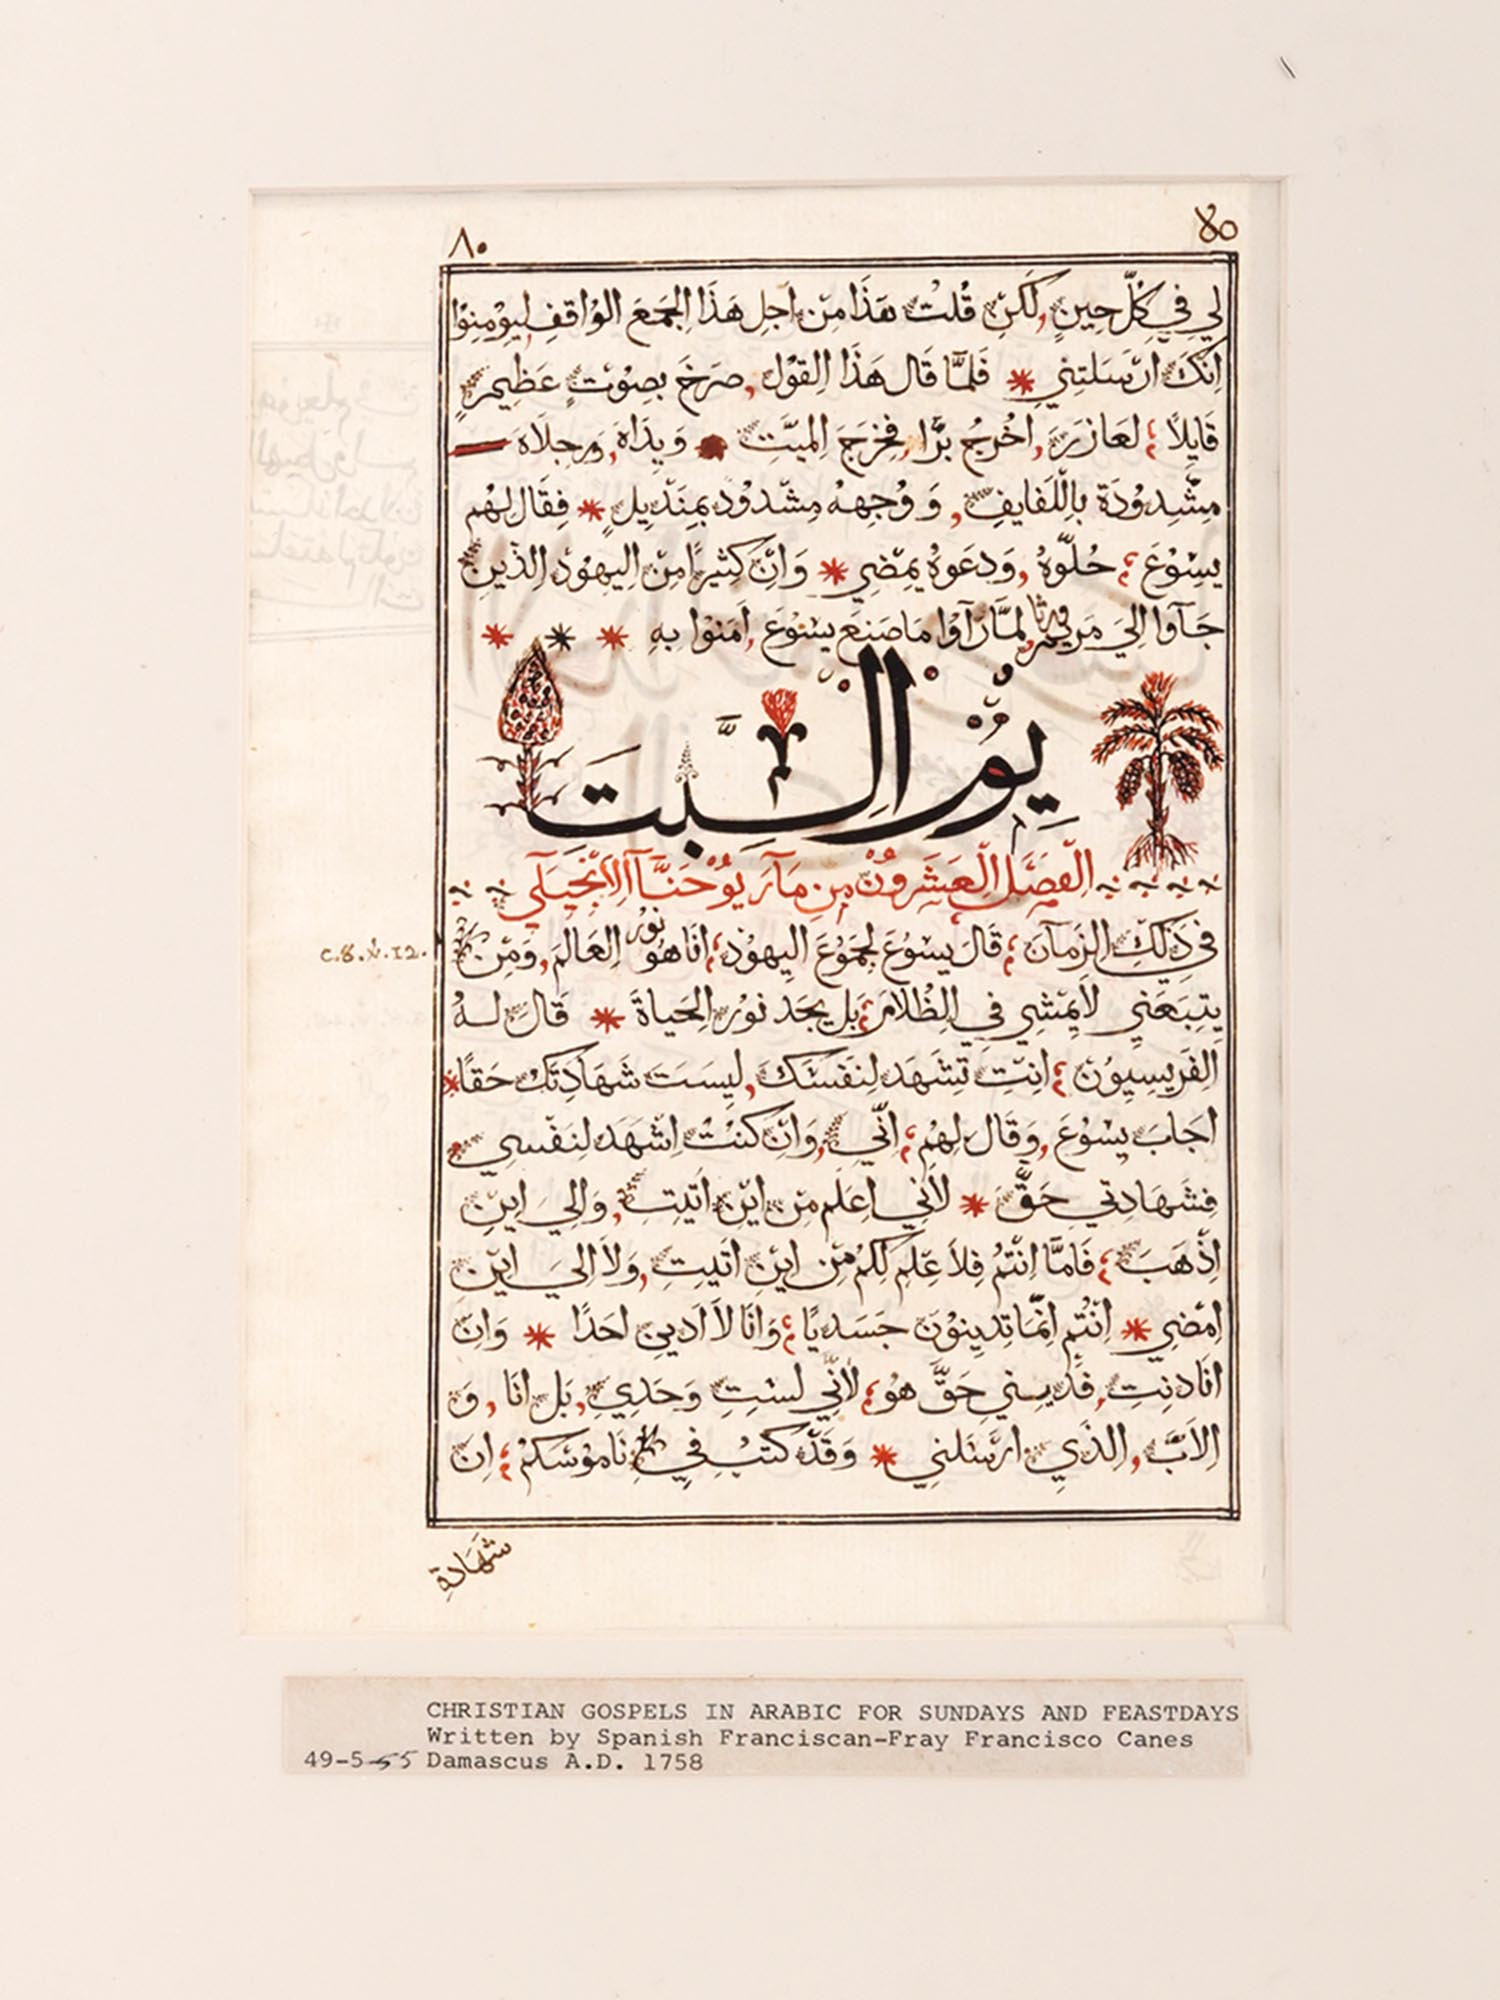 ٨٠
لي في كلّ حينٍ, لكن قُلت هذا من اجل هذا الجمع الواقف ليومنوا
انك ارسلتني * فلمَّا قال هذا القول, صرخ بصوتٍ عظيمٍ
قايلاً؛ لعازر, اخرجُ برَّا, فخرج الميّت • ويداه, ورجلاه
مشدودة باللفايف, و وجهه مشدود بمنديلٍ * فقال لهم
يسوع؛ حلّوهُ, ودعوهُ يمضي * وان كثيرًا من اليهود الذين
جآوا الي مريم ومرثا, لمَّا رآوا ما صنع يسوع, امنوا به * * *
يوم السبت
الفصل العشرون من مار يوحنَّا الانجيلي
في ذلك الزمان؛ قال يسوع لجموع اليهود؛ انا هو نور العالم, ومن
يتبعني لا يمشي في الظلام؛ بل يجد نور الحياة * قال له
الفريسيون؛ انت تشهد لنفسك, ليست شهادتك حقًا *
c.8.v.12.
اجاب يسوع, وقال لهم؛ انّي, وان كنت اشهد لنفسي
فشهادتي حقٌّ * لأني اعلم من اين اتيت, والي اين
اذهب؛ فامَّا انتم فلا علم لكم من اين اتيت, ولا الي اين
امضي * انتم انمّا تدينون جسديًا؛ وانا لا ادين احدًا * وان
انا دنت, فديني حقّ هو؛ لأنّي لست وحدي, بل انا, و
الابّ, الذي ارسلني * وقد كتب في ناموسكم؛ ان
شهادة
CHRISTIAN GOSPELS IN ARABIC FOR SUNDAYS AND FEASTDAYS
Written by Spanish Franciscan-Fray Francisco Canes
49-5-55 Damascus A.D. 1758